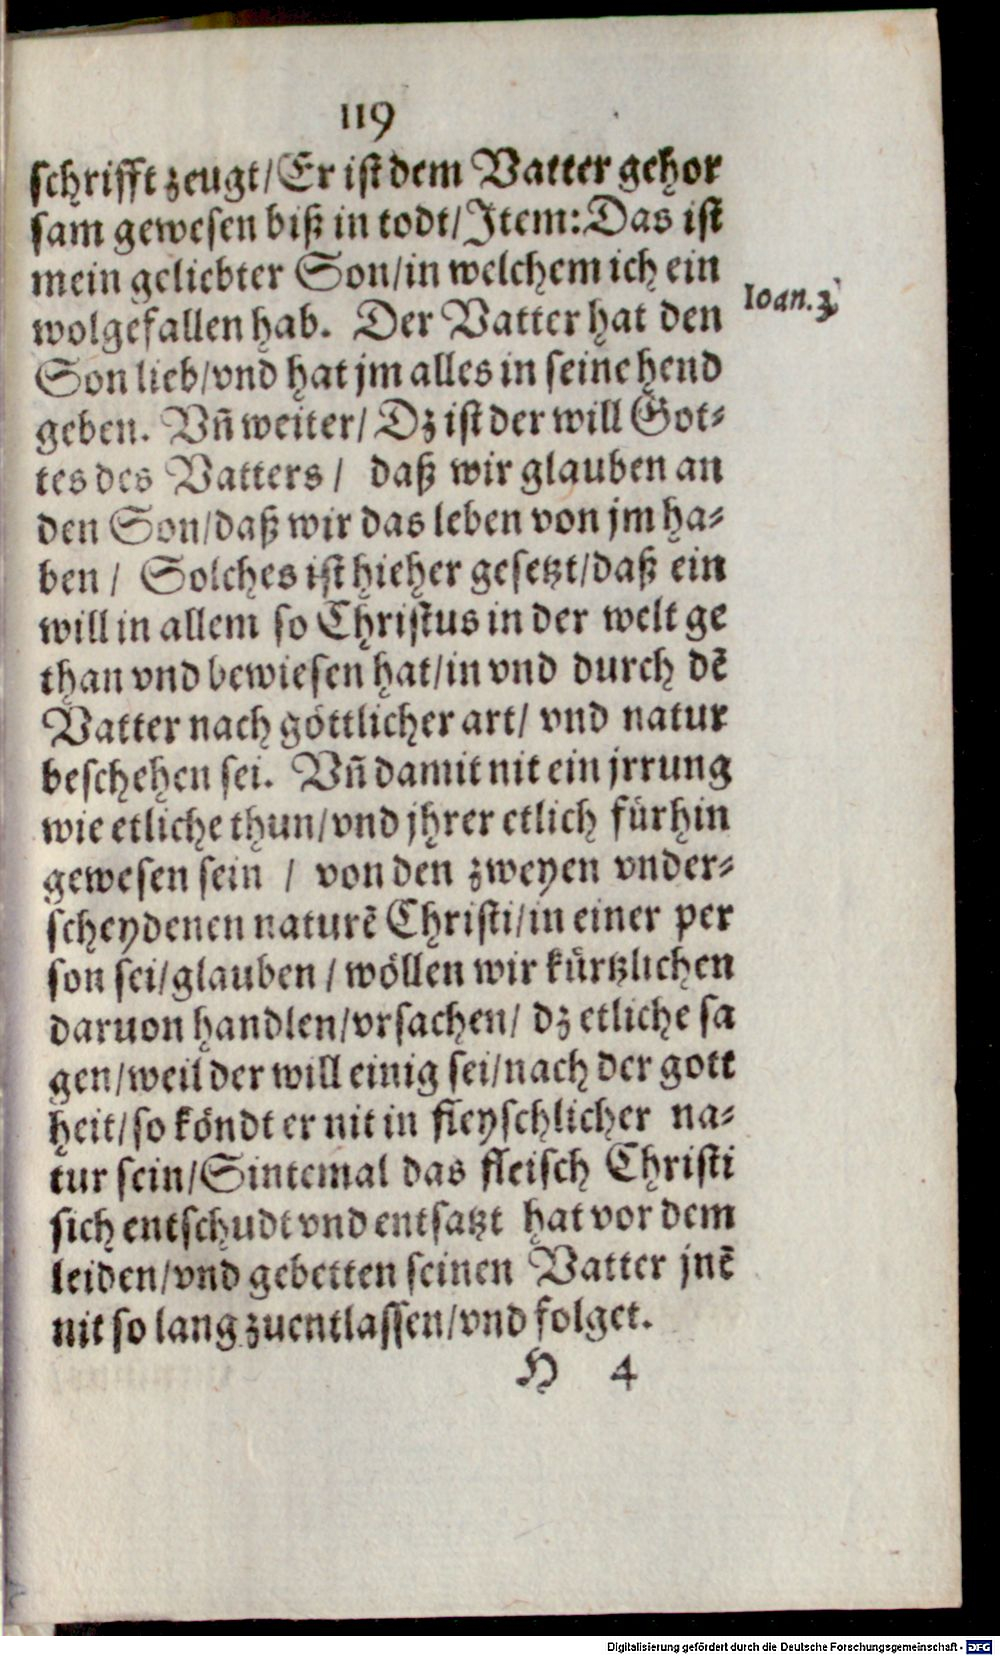 119
schrifft zeugt/Er ist dem Vatter gehor
sam gewesen biß in todt/Item: Das ist
mein geliebter Son/in welchem ich ein
wolgefallen hab. Der Vatter hat den
Ioan. 3.
Son lieb/vnd hat jm alles in seine hend
geben. Vñ weiter/ Dz ist der will Got⸗
tes des Vatters/ daß wir glauben an
den Son/daß wir das leben von jm ha⸗
ben/ Solches ist hieher gesetzt/daß ein
will in allem so Christus in der welt ge
than vnd bewiesen hat/in vnd durch dē
Vatter nach göttlicher art/ vnd natur
beschehen sei. Vñ damit nit ein jrrung
wie etliche thun/vnd jhrer etlich fürhin
gewesen sein / von den zweyen vnder⸗
scheydenen naturē Christi/in einer per
son sei/glauben/wöllen wir kürtzlichen
daruon handlen/vrsachen/ dz etliche sa
gen/weil der will einig sei/nach der gott
heit/so köndt er nit in fleyschlicher na⸗
tur sein/Sintemal das fleisch Christi
sich entschudt vnd entsatzt hat vor dem
leiden/vnd gebetten seinen Vatter jnē
nit so lang zuentlassen/vnd folget.
H 4
Digitalisierung gefördert durch die Deutsche Forschungsgemeinschaft - DFG